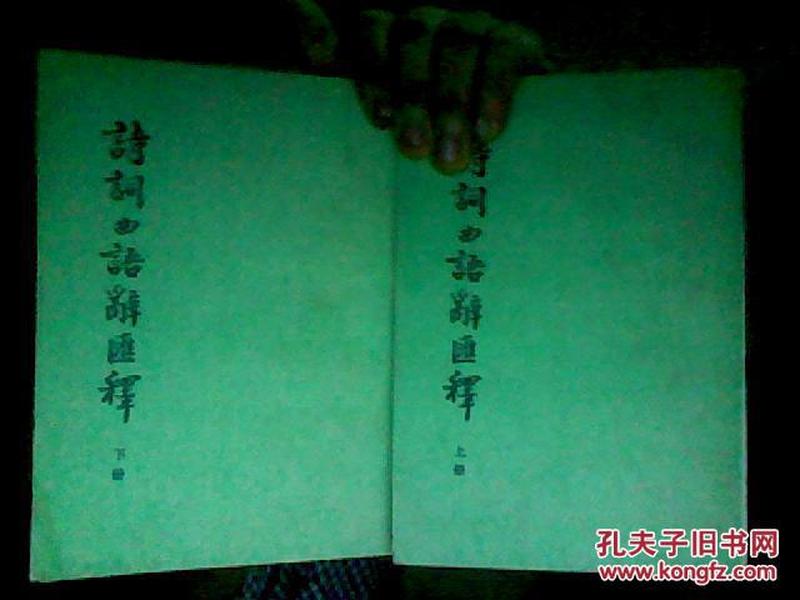 詩詞曲語辭匯釋
下册
詩詞曲語辭匯釋
上册
孔夫子旧书网
www.kongfz.com